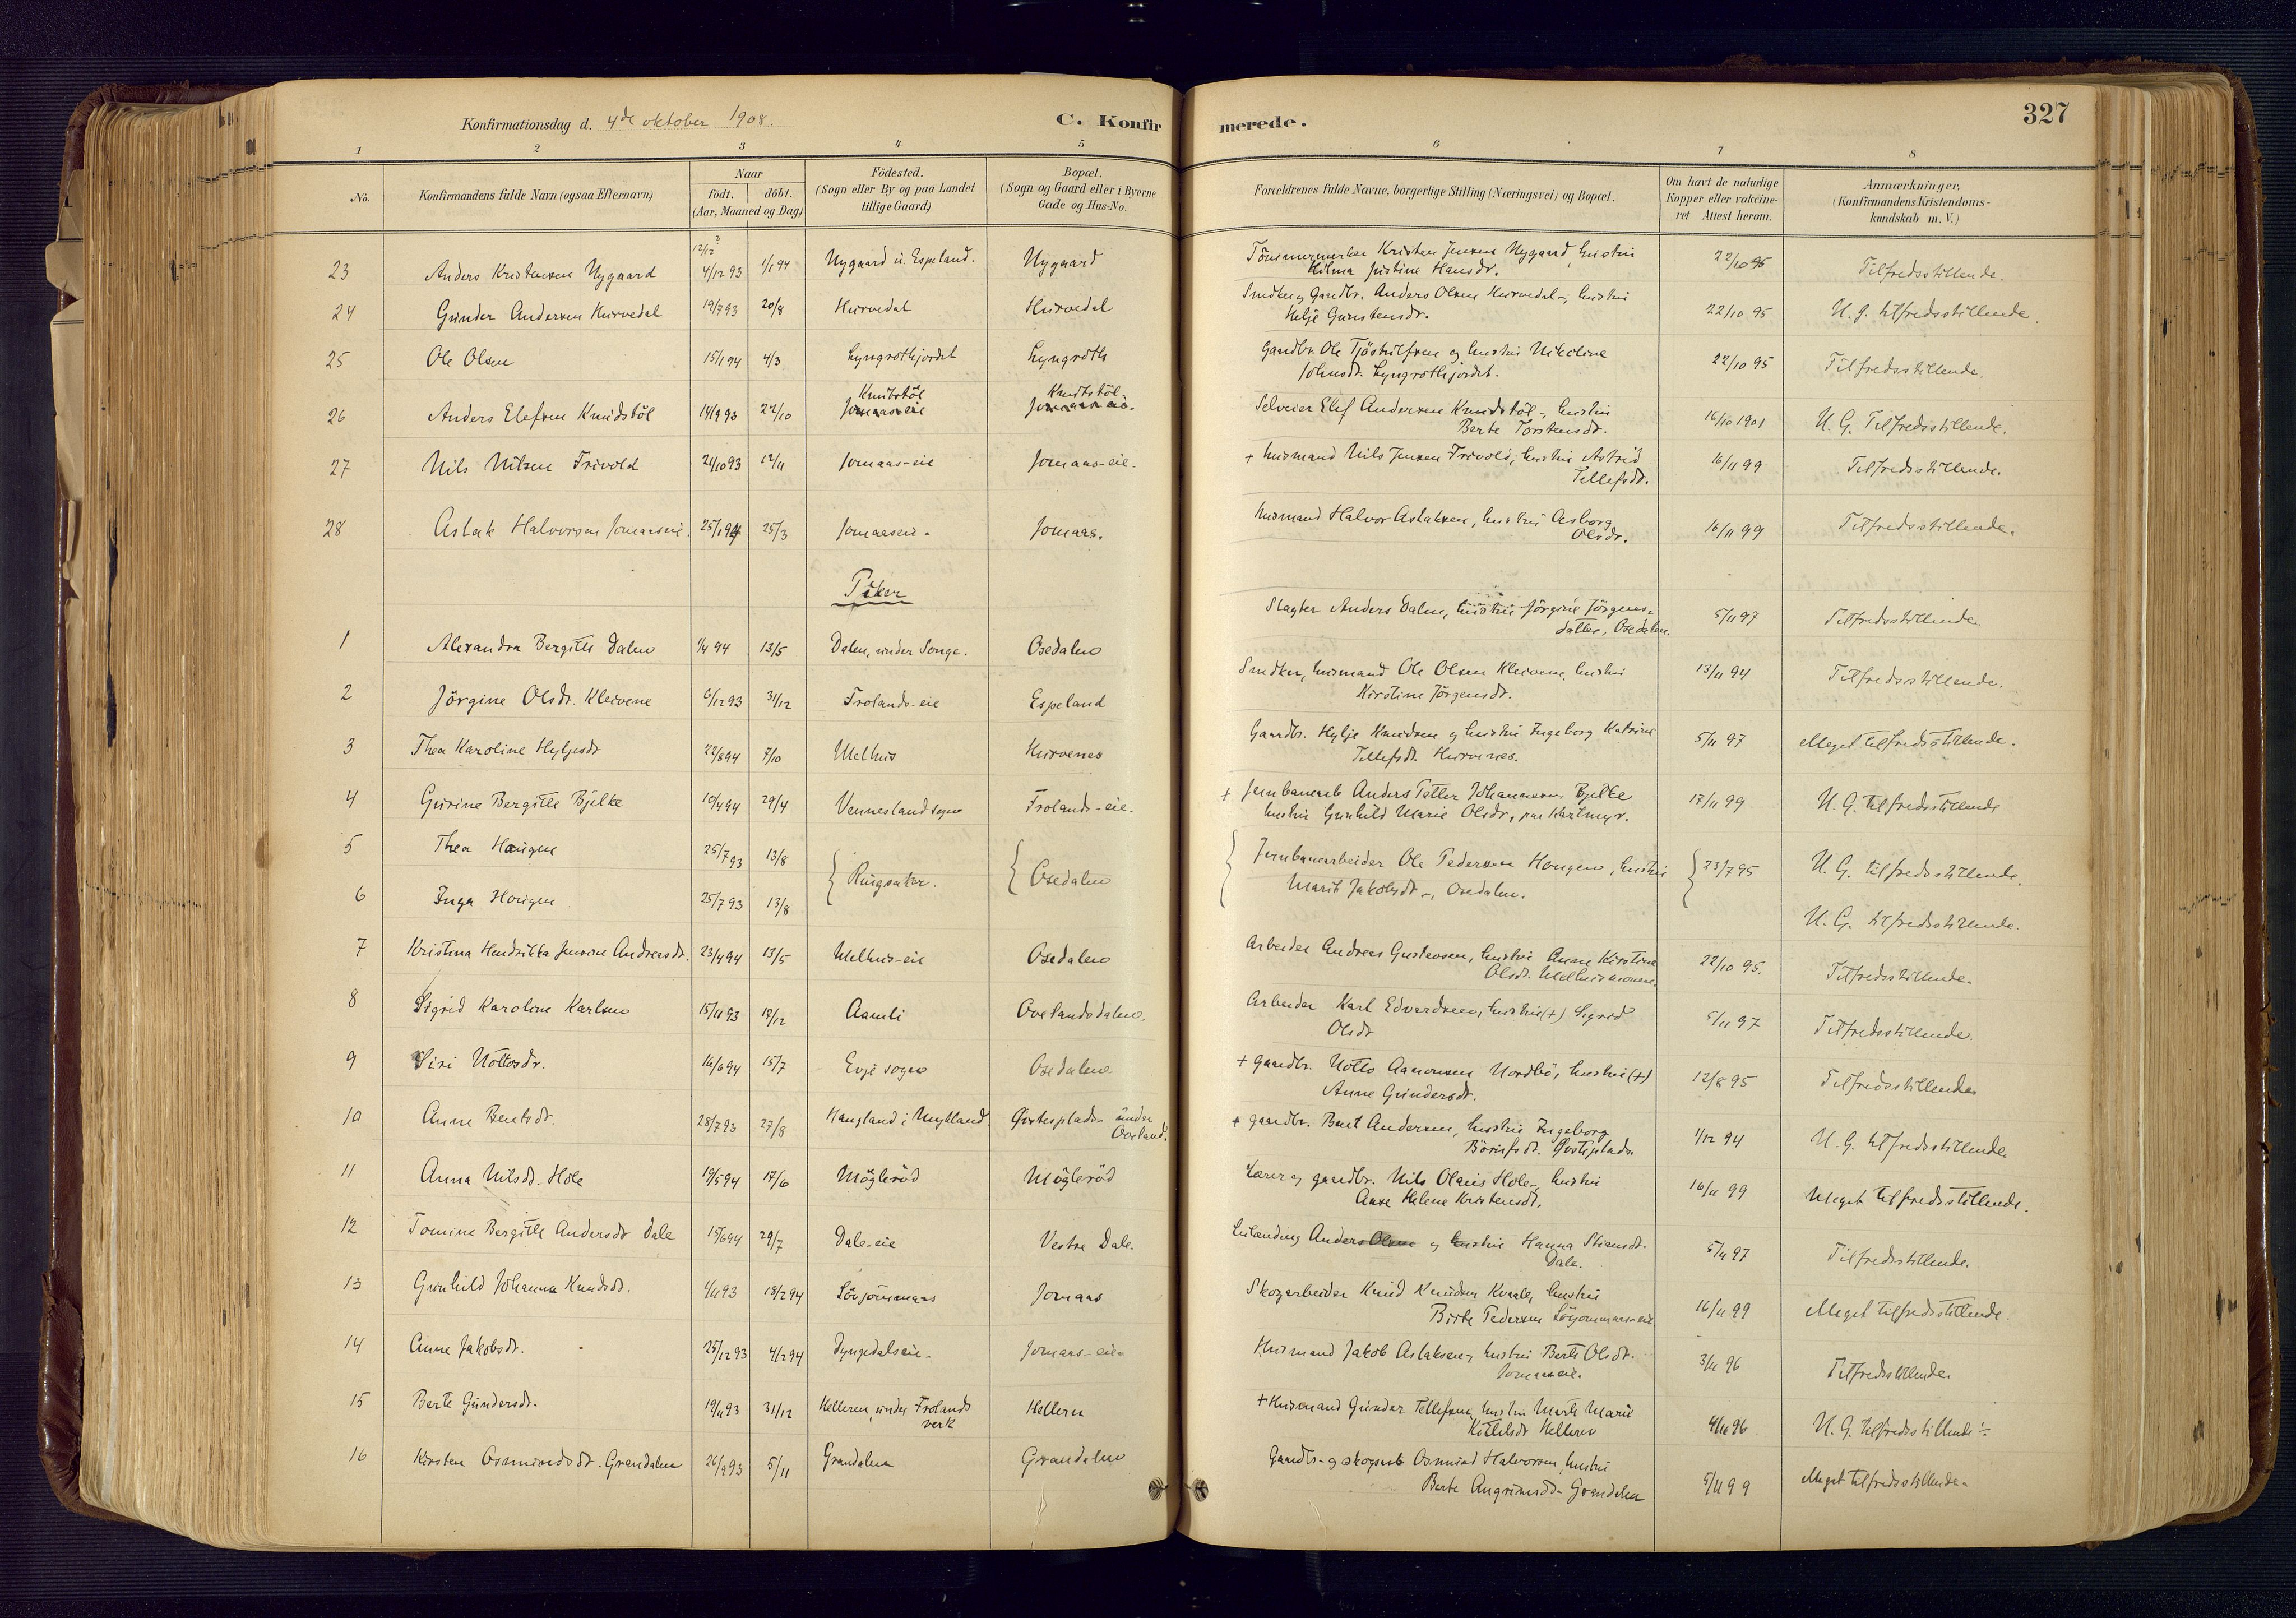 Konfirmationsdag d. 4de oktober 1908.
C. Konfirmerede.
327
1 2 3 4 5 6 7 8
No.
Konfirmandens fulde Navn (ogsaa Efternavn)
Naar
födt. döbt.
(Aar, Maaned og Dag)
Födested.
(Sogn eller By og paa Landet
tillige Gaard)
Bopæl.
(Sogn og Gaard eller i Byerne
Gade og Hus-No.
Forældrenes fulde Navne, borgerlige Stilling (Næringsvei) og Bopæl.
Om havt de naturlige
Kopper eller vakcine-
ret Attest herom.
Anmærkninger.
(Konfirmandens Kristendoms-
kundskab m. V.)
12/12 ?
23 Anders Kristensen Nygaard 4/12 93 1/1 94 Nygaard u. Espeland. Nygaard Tömmermerker Kristen Jensen Nygaard, hustru
Hilma Justine Hansdr. 22/10 95 Tilfredsstillende.
24 Gunder Andersen Hurvedal 19/7 93 20/8 Hurvedal Hurvedal Smed og Gaardbr. Anders Olsen Hurvedal, hustru
Helje Gunstensdr. 22/10 95 U. g. tilfredsstillende.
25 Ole Olsen 15/1 94 4/3 Lyngrothjordet Lyngroth Gaardbr. Ole Tjöstulfsen og hustru Nikoline
Johnsdr. Lyngrothjordet. 22/10 95 Tilfredsstillende.
26 Anders Elefsen Knudstöl 14/9 93 22/10 Knutstöl
Jomaaseie Knutstöl
Jomaaseie. Selveier Elef Andersen Knudstöl, hustru
Berte Torstensdr. 16/10 1901 U. G. Tilfredsstillende.
27 Nils Nilsen Trivold 21/10 93 12/11 Jomaas-eie Jomaas-eie. + husmand Nils Jensen Trivold, hustru Astrid
Tellefsdr. 16/11 99 Tilfredsstillende.
28 Aslak Halvorsen Jomaaseie. 25/1 94 25/3 Jomaaseie. Jomaas. husmand Halvor Aslaksen, hustru Asborg
Olsdr. 16/11 99 Tilfredsstillende.
Piker
1 Alexandra Bergitte Dalen 1/4 94 13/5 Dalen, under Songe. Osedalen Slagter Anders Dalen, hustru Jörgine Jörgens-
datter, Osedalen. 5/11 97 Tilfredsstillende.
2 Jörgine Olsdr. Kleivene 6/12 93 31/12 Frolands-eie Espeland Smed, husmand Ole Olsen Kleivene, hustru
Kirstine Jörgensdr. 13/11 94 Tilfredsstillende.
3 Thea Karoline Hyljesdr 22/8 94 7/10 Melhus Hurvenes Gaardbr. Hylje Knudsen og hustru Ingeborg Katrine
Tellefsdr. Hurvenes. 5/11 97 Meget tilfredsstillende.
4 Gurine Bergitte Bjelke 10/4 94 29/4 Vennesland sogn Frolands-eie. + Jernbanearb Anders Petter Johannesen Bjelke
hustru Gunhild Marie Olsdr, 17/11 99 U. G. tilfredsstillende
5 Thea Haugen 25/7 93 13/8 Ringsaker. Osedalen Jernbanearbeider Ole Pedersen Haugen, hustru
Marit Jakobsdr, Osedalen. 23/7 95 U. G. tilfredsstillende.
6 Inga Haugen 25/7 93 13/8 U. G. tilfredsstillende.
7 Kristina Hendrikka Jensine Andreasdr. 23/4 94 13/5 Melhus-eie Osedalen Arbeider Andreas Gustavsen, hustru Anne Kirstine
Olsdr. Melhusmonen. 22/10 95. Tilfredsstillende.
8 Sigrid Karoline Karlsen 15/11 93 17/12 Aamli Ovelandsdalen. Arbeider Karl Edvardsen, hustru (+) Sigrid
Olsdr 5/11 97 Tilfredsstillende.
9 Siri Nottosdr. 16/6 94 15/7 Evje sogn Osedalen + gaardbr. Notto Aanonsen Nordbö, hustru (+)
Anne Gundersdr. 12/8 95 Tilfredsstillende
10 Anne Bentsdr. 28/7 93 27/8 Haugland i Mykland. Qvisteplads under
Oveland. + gaardbr. Bent Andersen, hustru Ingeborg
Börufsdr. Qvisteplads 1/12 94 U. G. tilfredsstillende
11 Anna Nilsdr. Hole 19/5 94 17/6 Möglerød Möglerød Lærer og gaardbr. Nils Olaus Hole, hustru
Anne Helene Kristensdr. 16/11 99 Meget tilfredsstillende.
12 Tomine Bergitte Andersdr Dale 15/6 94 29/7 Dale-eie Vestre Dale. Leilending Anders Olsen og hustru Hanna Stiansdr.
Dale. 5/11 97 Tilfredsstillende.
13 Gunhild Johanna Knudsdr. 4/11 93 18/2 94 Sörjommaas Jomaas Skogarbeider Knud Knudsen Kvaale, hustru
Birte Pedersen Sörjommaas-eie 16/11 99 Meget tilfredsstillende.
14 Anne Jakobsdr. 25/12 93 4/2 94 Dyngedalseie Jomaas-eie Husmand Jakob Aslaksen, hustru Berte Olsdr.
Jomaaseie. 3/11 96 Tilfredsstillende.
15 Berte Gundersdr. 19/11 93 31/12 Helleren, under Frolands
verk Hellern + Husmand Gunder Tellefsen, hustru Marte Marie
Kittelsdr Helleren 4/11 96 U. G. tilfredsstillende ÷
16 Kirsten Osmundsdr. Grandalen 26/9 93 5/11 Grandalen Grandalen Gaardbr- og skogsarb Osmund Halvorsen, hustru
Berte Angrimsdr Grandalen 5/11 99 Meget tilfredsstillende.